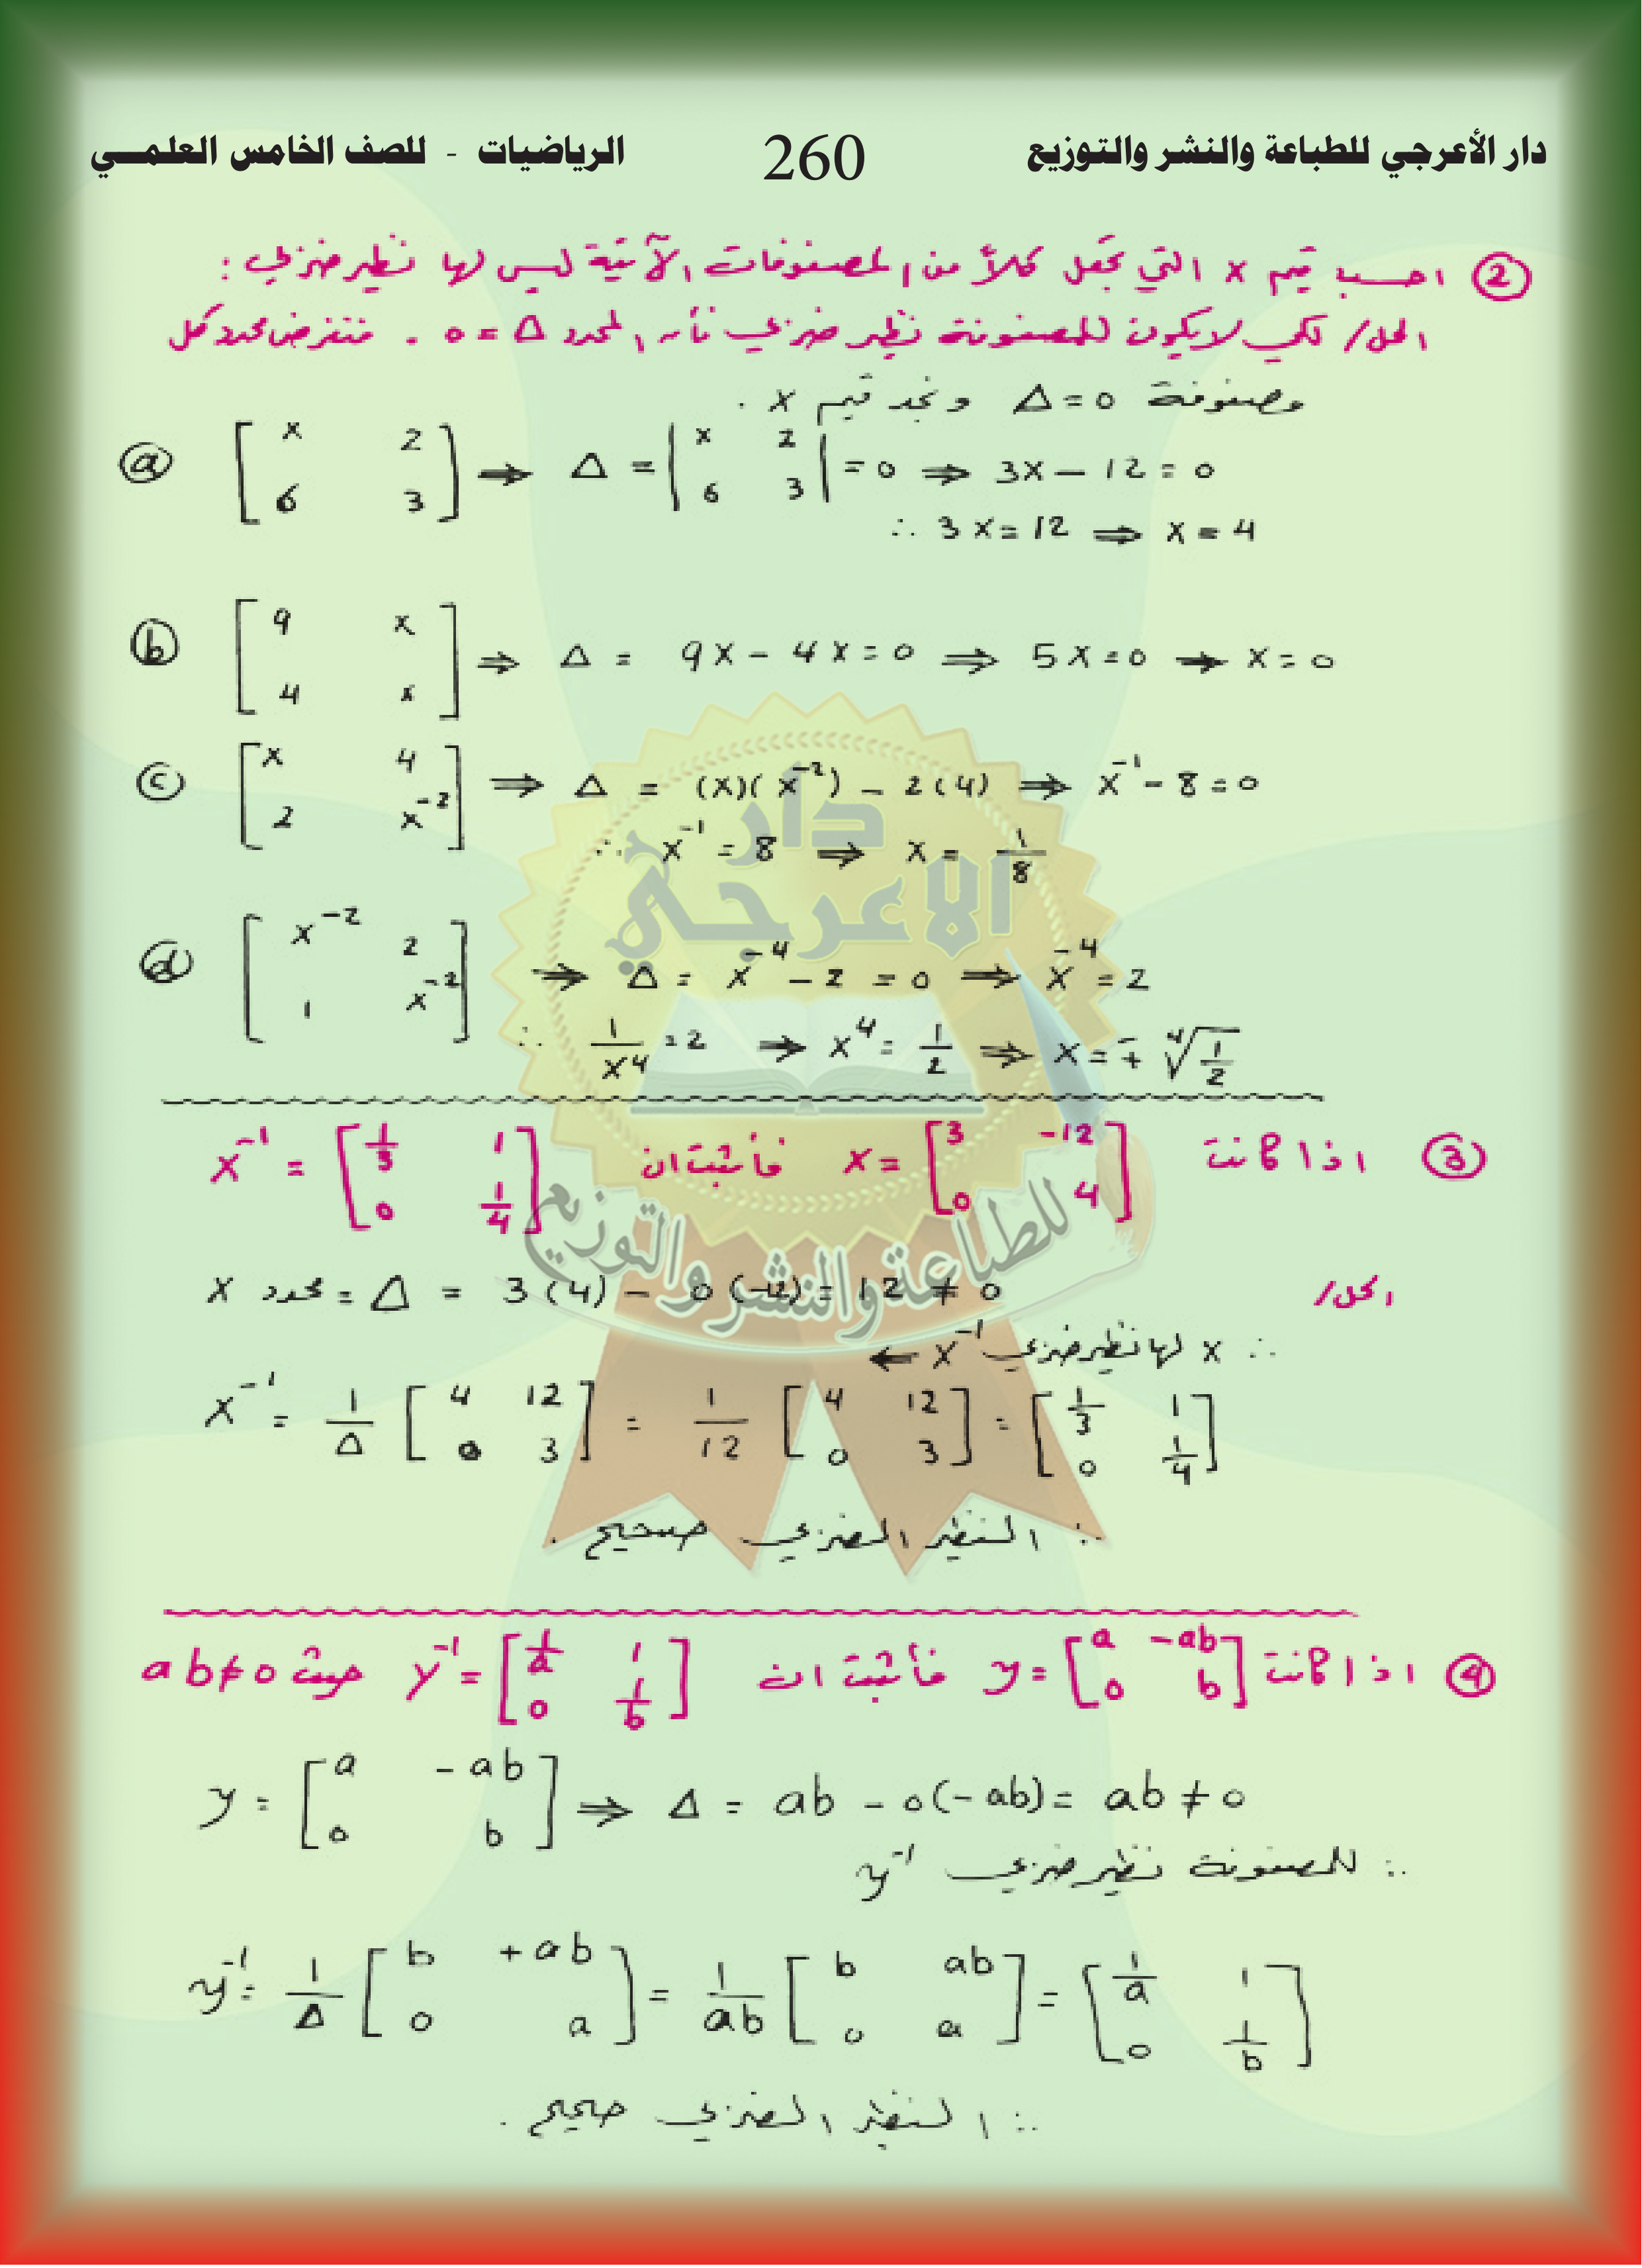 دار الأعرجي للطباعة والنشر والتوزيع 260 الرياضيات - للصف الخامس العلمـــي
② احسب قيم x التي تجعل كلاً من المصفوفات الآتية ليس لها نظير ضربي :
الحل/ لكي لا يكون للمصفوفة نظير ضربي نأخذ المحدد Δ = 0 . فنفرض محدد كل
مصفوفة Δ = 0 ونجد قيم x .
ⓐ [x 2 ; 6 3] ⇒ Δ = |x 2 ; 6 3| = 0 ⇒ 3x - 12 = 0
∴ 3x = 12 ⇒ x = 4
ⓑ [9 x ; 4 x] ⇒ Δ = 9x - 4x = 0 ⇒ 5x = 0 → x = 0
ⓒ [x 4 ; 2 x⁻²] ⇒ Δ = (x)(x⁻²) - 2(4) ⇒ x⁻¹ - 8 = 0
∴ x⁻¹ = 8 ⇒ x = 1/8
ⓓ [x⁻² 2 ; 1 x⁻²] ⇒ Δ = x⁻⁴ - 2 = 0 ⇒ x⁻⁴ = 2
∴ 1/x⁴ = 2 ⇒ x⁴ = 1/2 ⇒ x = ∓ ⁴√(1/2)
③ اذا كانت x = [3 -12 ; 0 4] فأثبت ان x⁻¹ = [1/3 1 ; 0 1/4]
الحل/ محدد x = Δ = 3(4) - 0(-12) = 12 ≠ 0
∴ x لها نظير ضربي x⁻¹ ←
x⁻¹ = 1/Δ [4 12 ; 0 3] = 1/12 [4 12 ; 0 3] = [1/3 1 ; 0 1/4]
∴ النظير الضربي صحيح .
④ اذا كانت y = [a -ab ; 0 b] فأثبت ان y⁻¹ = [1/a 1 ; 0 1/b] حيث ab ≠ 0
y = [a -ab ; 0 b] ⇒ Δ = ab - 0(-ab) = ab ≠ 0
∴ للمصفوفة نظير ضربي y⁻¹
y⁻¹ = 1/Δ [b +ab ; 0 a] = 1/ab [b ab ; 0 a] = [1/a 1 ; 0 1/b]
∴ النظير الضربي صحيح .
دار
الاعرجي
للطباعة والنشر والتوزيع